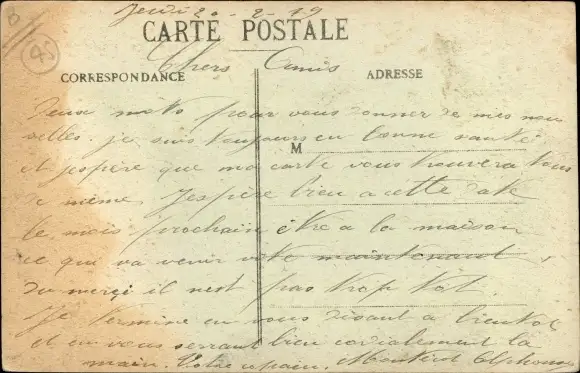 Jeudi 20-2-19
B
45
CARTE POSTALE
Chers Amis
CORRESPONDANCE
ADRESSE
Deux mots pour vous donner de mes nou
velles. je suis toujours en bonne santé
M
et jespère que ma carte vous trouvera tous
de même. Jespère bien a cette date
le mois prochain être a la maison
ce qui va venir vite maintenant,
du merçi il nest pas trop tôt.
Je termine en vous disant a bientot
et en vous serrant bien cordialement la
main. Votre copain. Alphonse